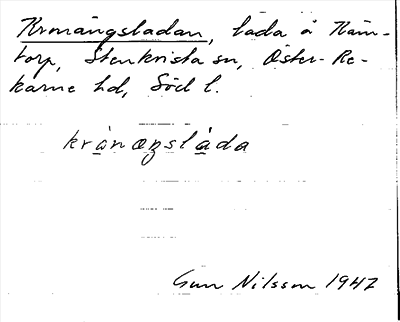 Kronängsladan, lada å Häm-
torp, Stenkvista sn, Öster-Re-
karne hd, Södl.
krånæŋslåda
Gun Nilsson 1947